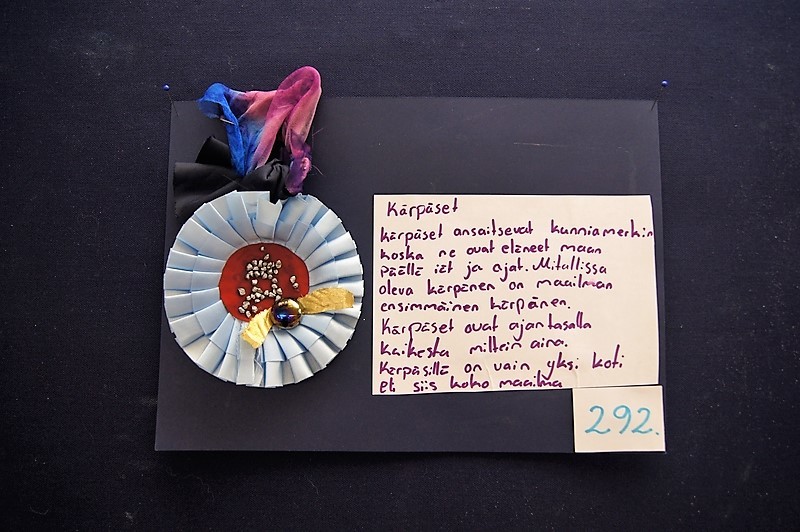 Kärpäset
Kärpäset ansaitsevat kunniamerkin
koska ne ovat eläneet maan
päällä iät ja ajat. Mitallissa
oleva kärpänen on maailman
ensimmäinen kärpänen.
Kärpäset ovat ajantasalla
kaikesta miltein aina.
Kärpäsillä on vain yksi koti
eli siis koko maailma
292.